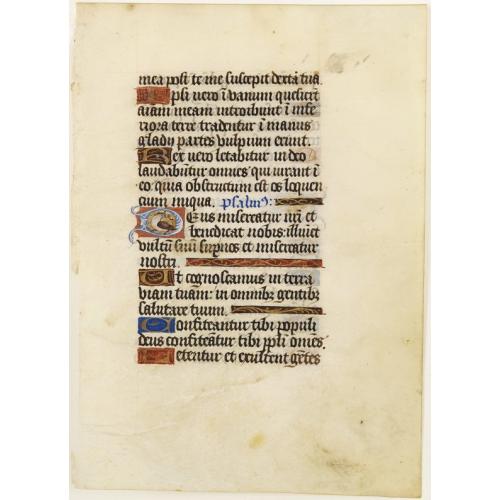 mea post te me suscepit dext̄a tua.
Ipsi uero ī vanum quesier̄t
aīam meam introibunt ī infe
riora terre tradentur ī manus
glady partes vulpium erunt.
Rex uero letabitur in deo
laudabūtur omnes qui iurant ī
eo quia obstructum est os loquen
cium iniqua. psalmꝰ:
Deus misereatur nr̄i et
benedicat nobis: illuīet
vultū suū sup nos et misereatur
nostri.
Ut cognoscamus in terra
viam tuam: in omnibꝫ gentibꝫ
salutare tuum.
Confiteantur tibi populi
deus confiteātur tibi pp̄li om̄es.
Letentur et exultent gētes